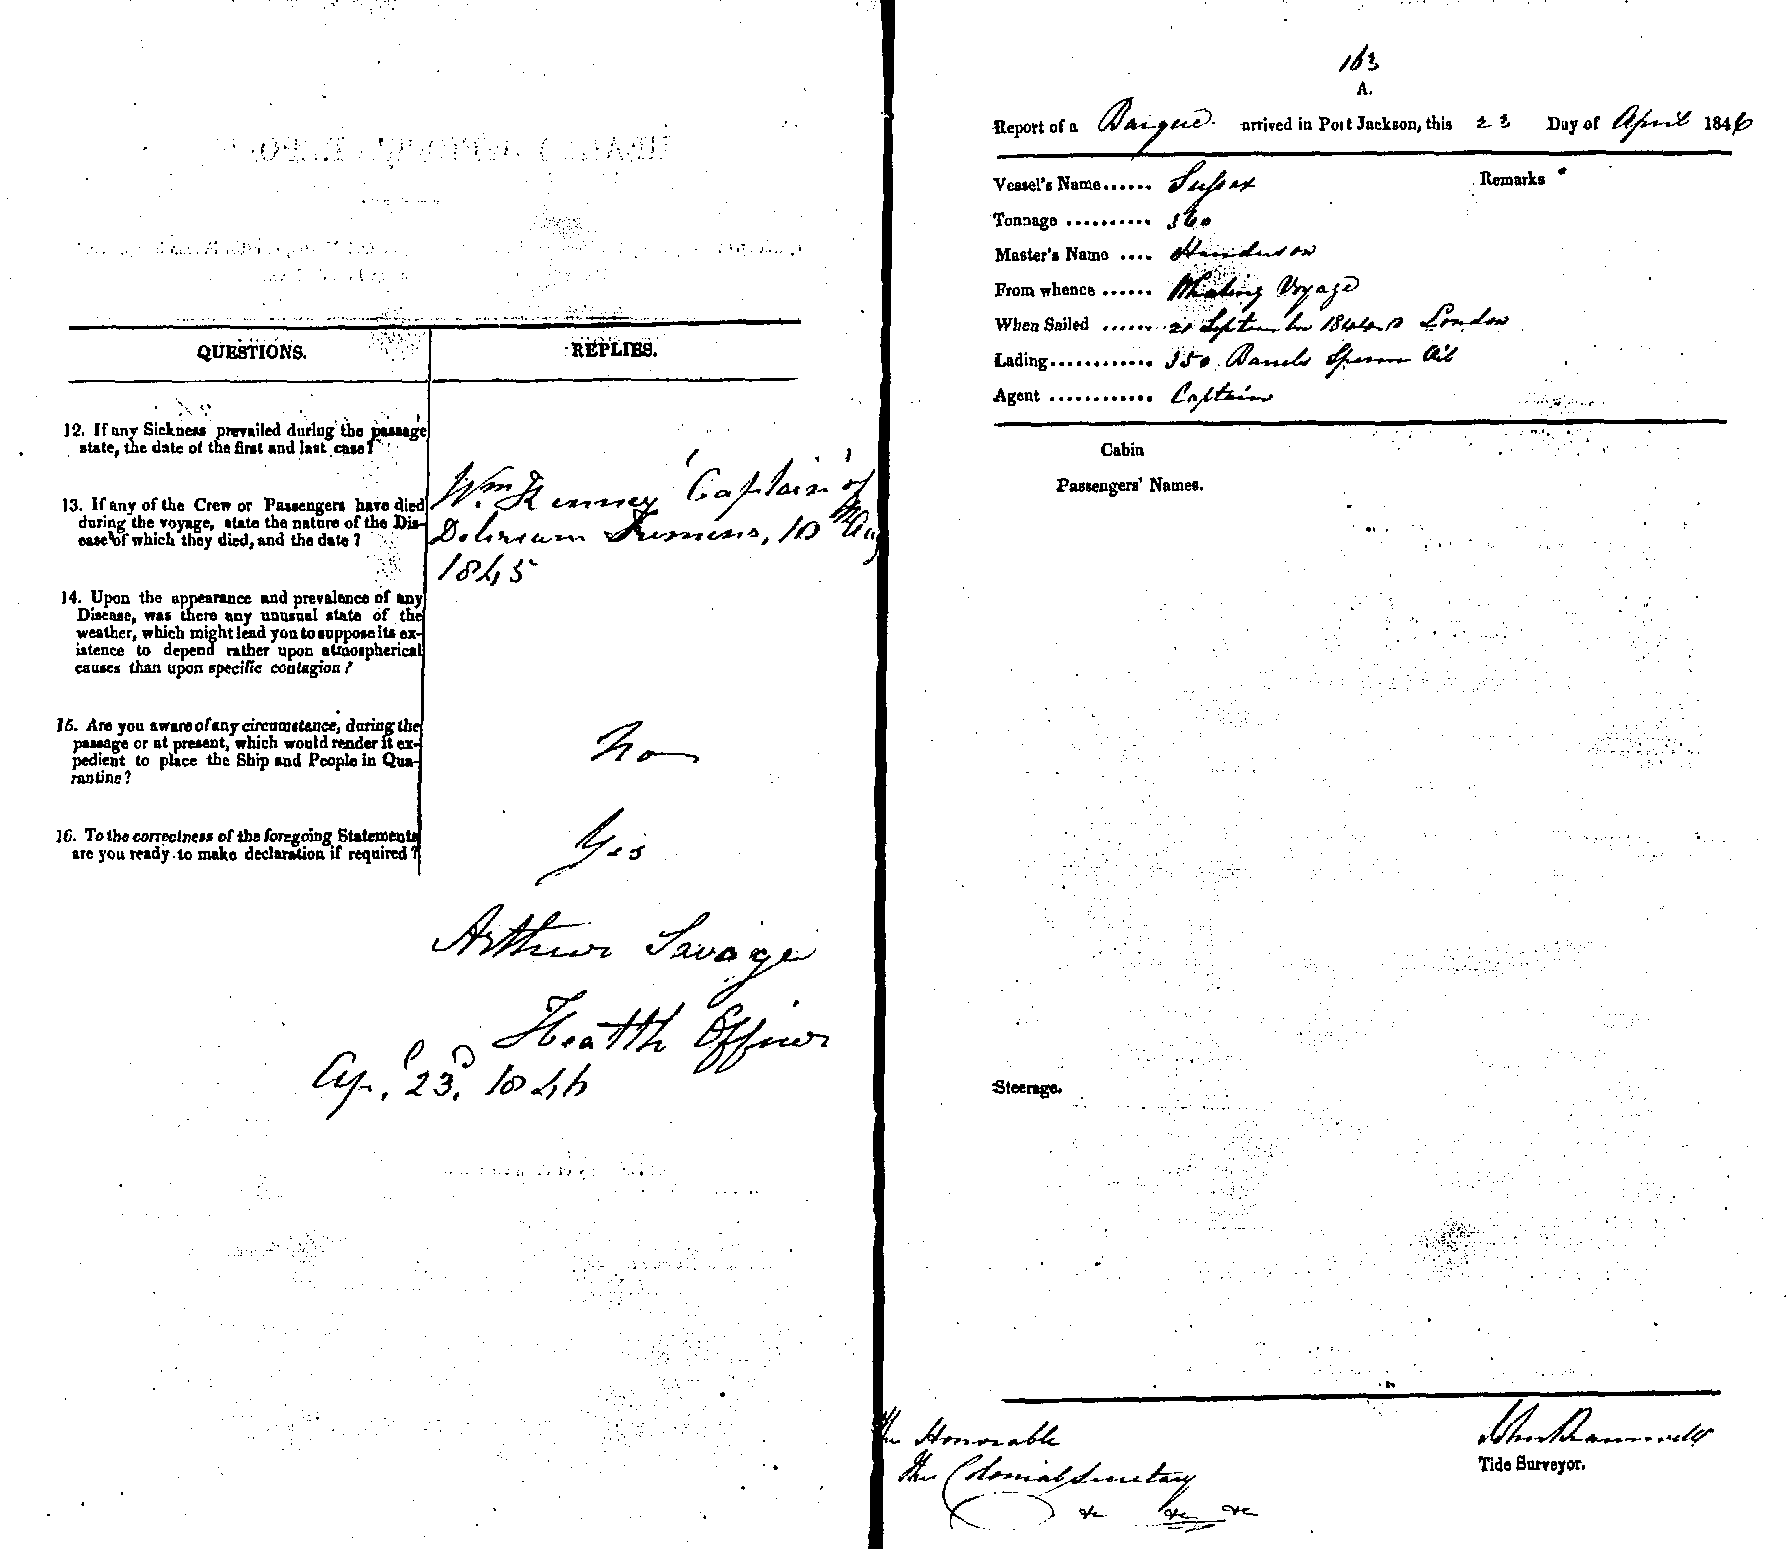 QUESTIONS.
REPLIES.
12. If any Sickness prevailed during the passage
state, the date of the first and last case?
13. If any of the Crew or Passengers have died
during the voyage, state the nature of the Dis-
ease of which they died, and the date?
Wm. Kenney Captain of
Delirium Tremens, 10th Aug
1845
14. Upon the appearance and prevalence of any
Disease, was there any unusual state of the
weather, which might lead you to suppose its ex-
istence to depend rather upon atmospherical
causes than upon specific contagion?
15. Are you aware of any circumstance, during the
passage or at present, which would render it ex-
pedient to place the Ship and People in Qua-
rantine?
No
16. To the correctness of the foregoing Statements
are you ready to make declaration if required?
Yes
Arthur Savage
Health Officer
Ap. 23. 1846
163
A.
Report of a Barque arrived in Port Jackson, this 23 Day of April 1846
Vessel's Name...... Sussex
Remarks
Tonnage .......... 360
Master's Name .... Henderson
From whence ...... Whaling Voyage
When Sailed ...... 21 September 1844 London
Lading............ 350 Barrels Sperm Oil
Agent ............ Captain
Cabin
Passengers' Names.
Steerage.
The Honorable
The Colonial Secretary
&c &c &c
John Bramwell
Tide Surveyor.